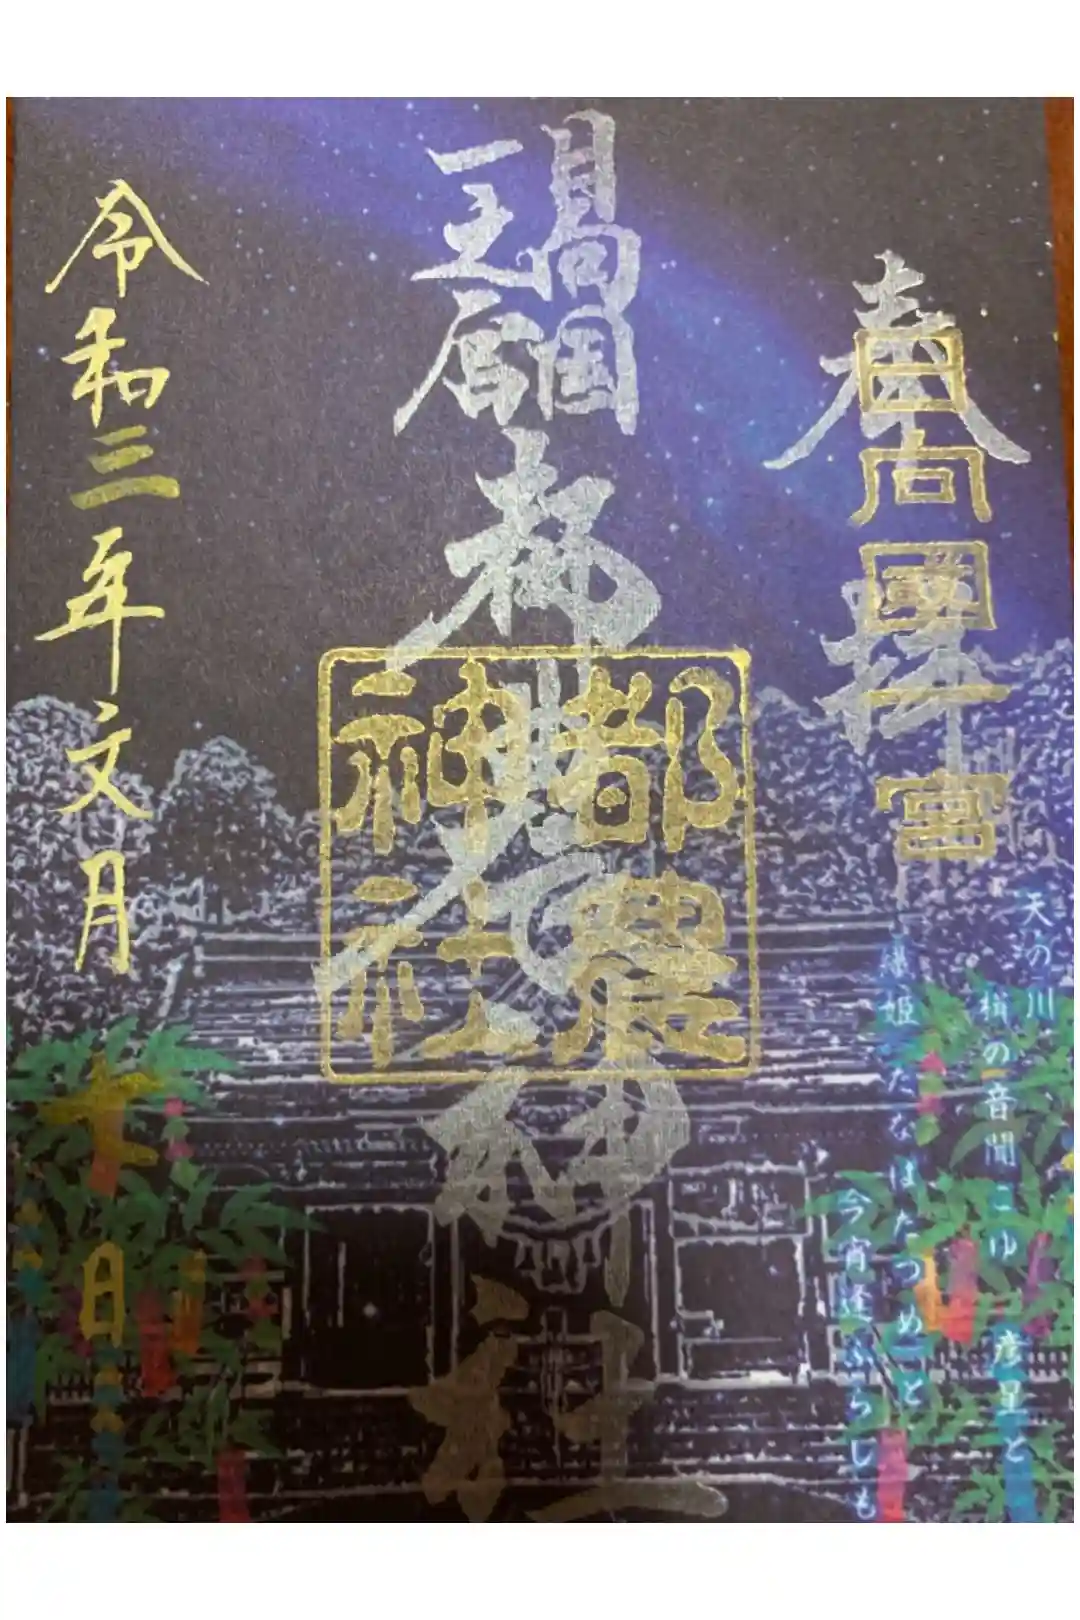 奉拝
日向國一宮
日向国
一之宮
都農神社
都農
神社
令和三年文月七日
天の川
楫の音聞こゆ 彦星と
織姫(たなばたつめ)と
今宵逢ふらしも